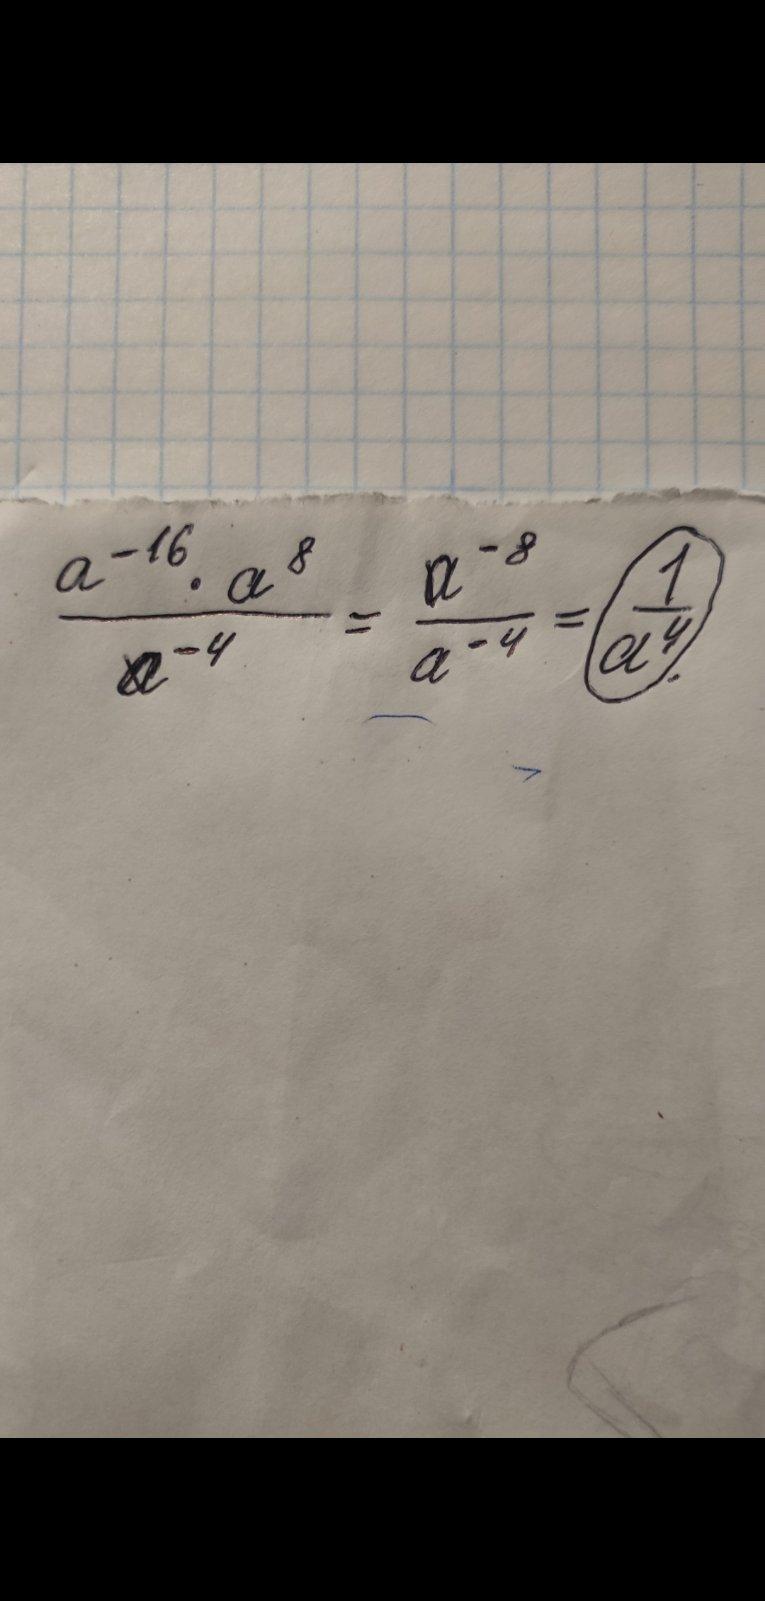 a⁻¹⁶ · a⁸ / a⁻⁴ = a⁻⁸ / a⁻⁴ = 1 / a⁴.